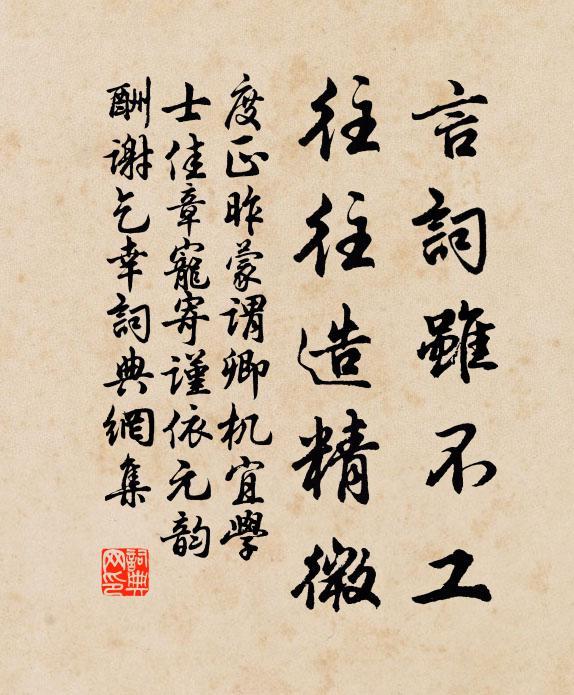 言詞雖不工
往往造精微
度正昨蒙謂卿机宜學
士佳章寵寄謹依元韵
酬謝乞幸詞典網集
詞典
网印